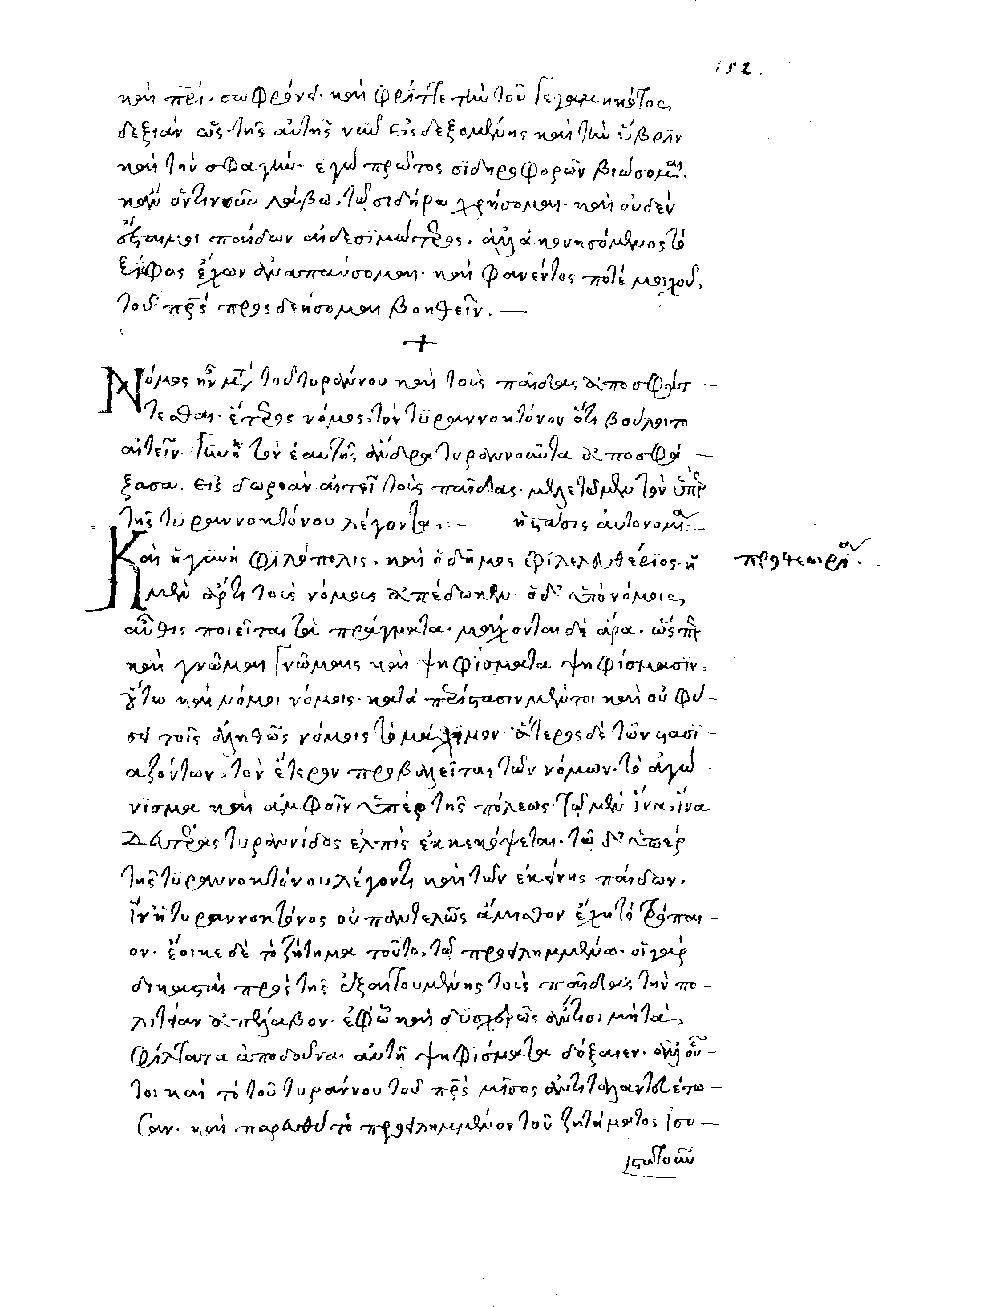 152.
καὶ πρὶ. σωφρόνει. καὶ φρίττε τὴν τοῦ γεγαμηκότος
δεξιὰν ὡς τῆς αὐτῆς νῦν εἰσδεξομένης καὶ τὴν ὕβριν
καὶ τὴν σφαγήν. ἐγὼ πρῶτος σιδηροφορῶν βιώσομαι.
καὶ ὅντινα οὖν λάβω, τῷ σιδήρῳ χρήσομαι. καὶ οὐδὲν
παίδων αἰδεσιμώτερος. ἀλλὰ κοιμησόμενος τὸ
ξίφος ἔχων ἀναπαύσομαι. καὶ φανέντος ποτέ μοιχοῦ,
τοῦ πρς προσδεήσομαι βοηθεῖν.
+
Νόμος ἦν μετὰ τοῦ τυράννου καὶ τοὺς παῖδας ἀποσφάτ-
τεσθαι. ἕτερος νόμος, τὸν τυραννοκτόνον ὅτι βούλοιτο
αἰτεῖν. γυνὴ τὸν ἑαυτῆς ἄνδρα τυραννοῦντα ἀποσφά-
ξασα. εἰς δωρεὰν αἰτεῖ τοὺς παῖδας. μελετῶμεν τὸν ὑπὲρ
τῆς τυραννοκτόνου λέγοντα: - ἡ στάσις ἀντινομία. -
Καὶ ἡ γυνὴ φιλόπολις. καὶ ὁ δῆμος φιλελευθέριος. ἡ προθεωρία.
μὲν ἄρτι τοὺς νόμους ἀπέδωκεν. ὁ δ' ὑπὸ νόμοις
αὖθις ποιεῖται τὰ πράγματα. μάχονται δὲ ἄρα. ὥσπερ
καὶ γνῶμαι γνώμαις καὶ ψηφίσματα ψηφίσμασιν.
οὕτω καὶ νόμοι νόμοις. κατὰ περίστασιν μέντοι καὶ οὐ φύ-
σει τοῖς ἀληθῶς νόμοις τὸ μαχόμενον. ἅτερος δὲ τῶν στασι-
αζόντων, τὸν ἕτερον προβαλεῖται τῶν νόμων. τὸ ἀγώ-
νισμα καὶ ἀμφοῖν ὑπὲρ τῆς πόλεως. τῷ μὲν ἵνα
δευτέρας τυραννίδος ἐλπὶς ἐκκεκόψεται. τῷ δ' ὑπὲρ
τῆς τυραννοκτόνου λέγοντι καὶ τῶν ἐκείνης παίδων.
ἵν' ἡ τυραννοκτόνος οὐ παντελῶς ἄμισθον ἔχῃ τὸ τρόπαι-
ον. ἔοικε δὲ τὸ ζήτημα τοῦτο, τῷ προειλημμένῳ. οἱ γὰρ
δικασταὶ πρὸς τῆς ἐξαιτουμένης τοὺς παῖδας τὴν πο-
λιτείαν ἀπέλαβον. ἐφ' ᾧ καὶ δυσχερῶς ἀντίσοι μὴ τὰ
φίλτατα ἀποδοῦναι αὐτῇ ψηφίσματα δόξαιεν. ἀλλ' οὗ-
τοι καὶ τὸ τοῦ τυράννου τοῦ πρς μῖσος ἀντιταλαντευέτω-
σαν. καὶ παρατεθὲν τὸ προειλημμένον τοῦ ζητήματος ἰσο-